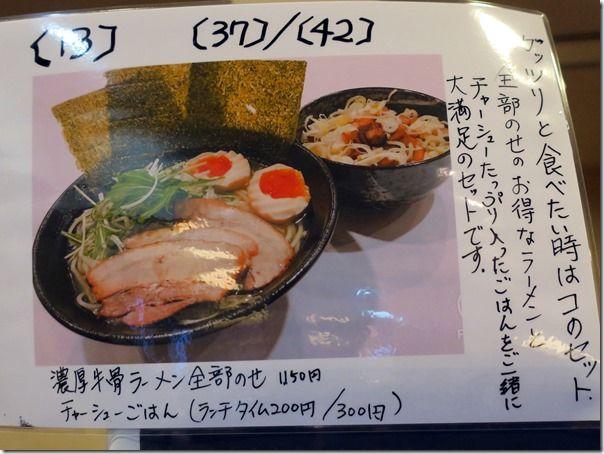 〔13〕 〔37〕/〔42〕
ゲッツリと食べたい時はコのセット.
全部のせの お得なラーメンと
チャーシューたっぷり入ったごはんをご一緒に
大満足のセットです.
濃厚牛骨ラーメン全部のせ 1150円
チャーシューごはん (ランチタイム200円/300円)